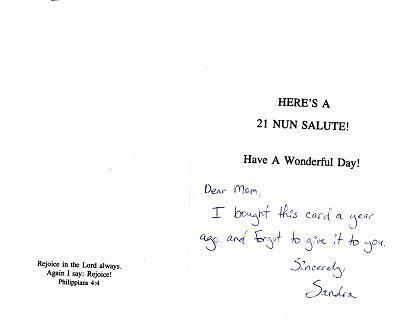 HERE'S A
21 NUN SALUTE!
Have A Wonderful Day!
Dear Mom,
I bought this card a year
ago and forgot to give it to you.
Sincerely,
Sandra
Rejoice in the Lord always.
Again I say: Rejoice!
Philippians 4:4